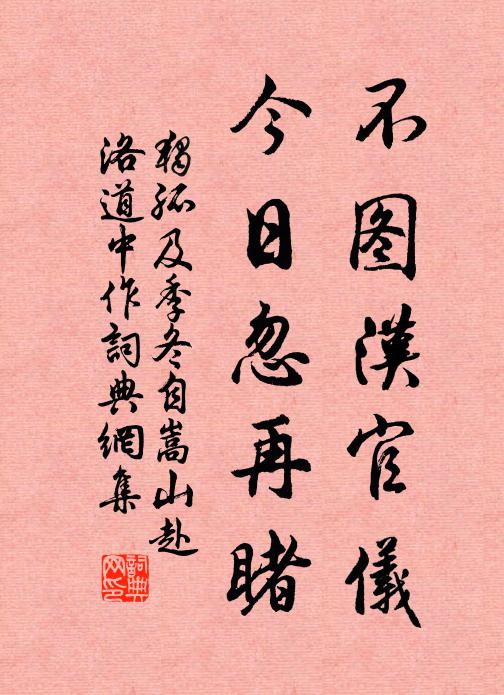 不图漢官儀
今日忽再睹
獨孤及季冬自嵩山赴
洛道中作詞典網集
詞典网印